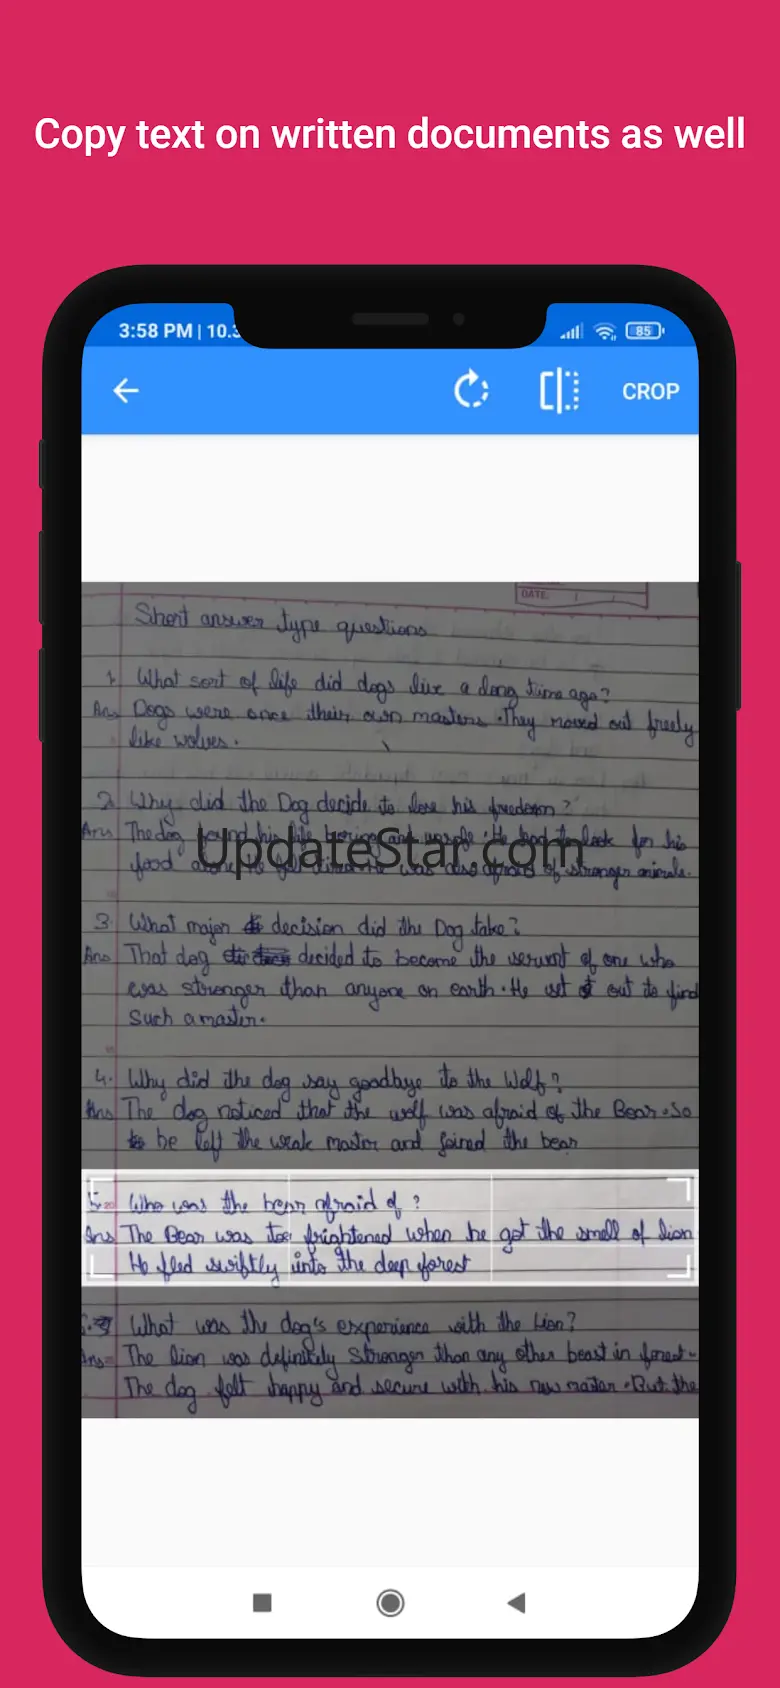 Copy text on written documents as well
3:58 PM | 10.3
85
CROP
DATE:
Short answer type questions
1. What sort of life did dogs live a long time ago?
Ans Dogs were once their own masters. They moved out freely
like wolves.
2. Why did the Dog decide to lose his freedom?
Ans The dog found his life boring and unsafe. He had to look for his
food alone. He was also afraid of stronger animals.
UpdateStar.com
3. What major decision did the Dog take?
Ans That dog decided to become the servant of one who
was stronger than anyone on earth. He set out to find
such a master.
4. Why did the dog say goodbye to the Wolf?
Ans The dog noticed that the wolf was afraid of the Bear. So
he left the weak master and joined the bear
5. Who was the bear afraid of ?
Ans The Bear was too frightened when he got the smell of lion
He fled swiftly into the deep forest
What was the dog's experience with the Lion?
Ans= The lion was definitely stronger than any other beast in forest.
The dog felt happy and secure with his new master. But the